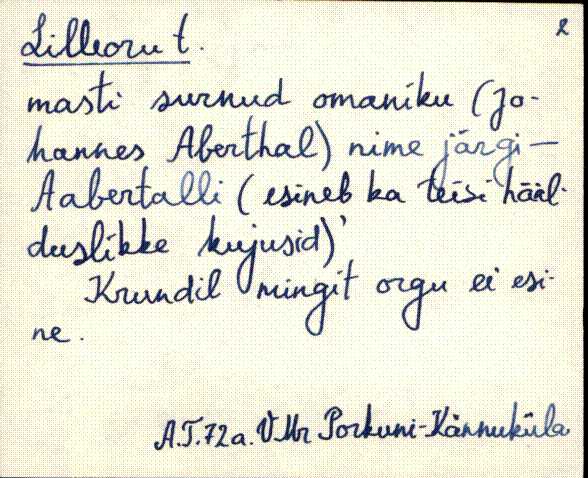 2
Lilleoru t.
masti surnud omaniku (Jo-
hannes Aberthal) nime järgi —
Aabertalli (esineb ka teisi hääl-
duslikke kujusid)'
Krundil mingit orgu ei esi-
ne.
A.T. 72 a. VMr Porkuni-Kännuküla